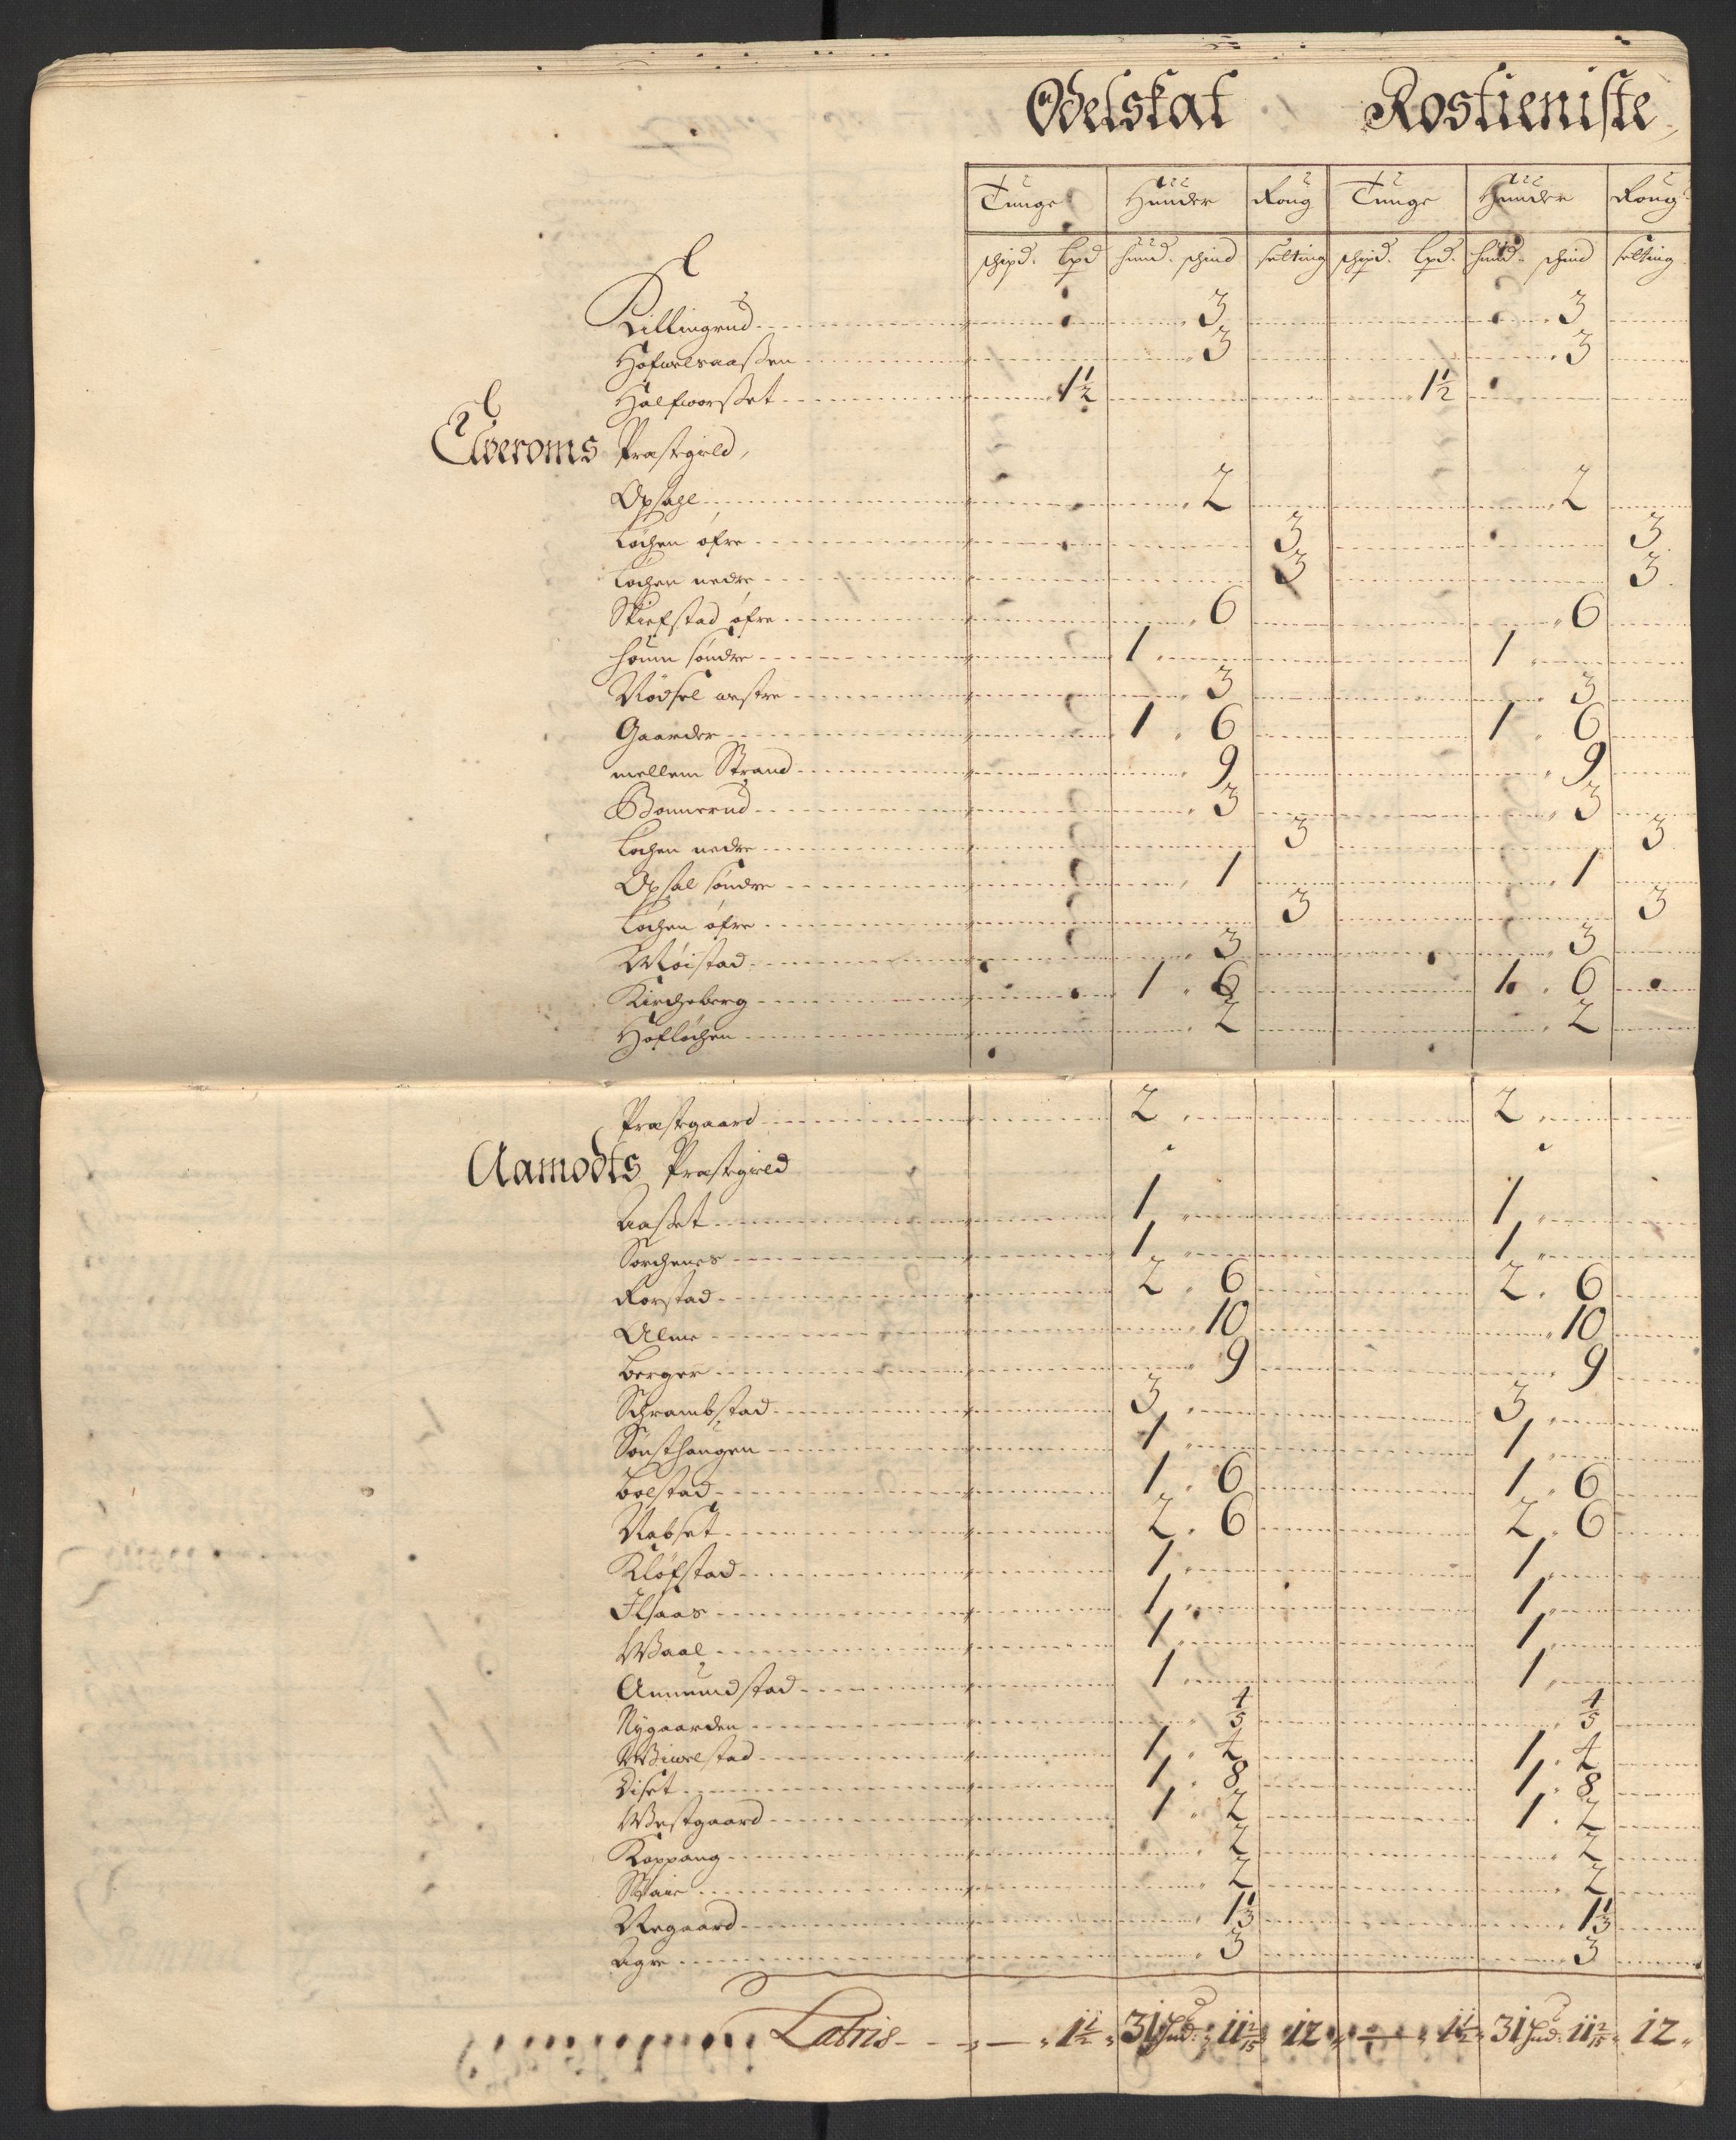 Odelskat Rostieniste
Tunge Huuder Roug Tunge Huuder Roug
schpd. lpd huud. schind setting schpd. lpd. huud. schind setting
Killingrud 3 3
Hofwelsaassen 3 3
Halfworset 1 1/2 1 1/2
Elveroms Præstegield,
Opsahl 2 2
Løchen øfre 3 3
Lochen nedre 3 3
Skiefstad øfre 6 6
houm søndre 1 1
Nødsel westre 3 3
Gaarder 1 6 1 6
mellem Strand 9 9
Bonnerud 3 3
Lochen nedre 3 3
Opsal søndre 1 1
Lochen øfre 3 3
Møistad 3 3
Kircheberg 1 6 1 6
Hofløchen 2 2
Præstegaard 2 2
Aamodts Præstegield
Aasset 1 1
Sorchnes 1 1
Rorstad 2 6 2 6
Alme 10 10
Berger 9 9
Schrambstad 3 3
Sonsthaugen 1 1
Bolstad 1 6 1 6
Nabset 2 6 2 6
Kløfstad 1 1
Ilsaas 1 1
Waal 1 1
Ammundstad 1 1
Nygaarden 4/5 4/5
Wiwelstad 1 4 1 4
Diset 1 8 1 8
Westgaard 1 2 1 2
Koppang 2 2
Staie 2 2
Negaard 1 1/3 1 1/3
Agre 3 3
Latris 1 1/2 31 hud: 11 2/15 12 1 1/2 31 hud: 11 2/15 12